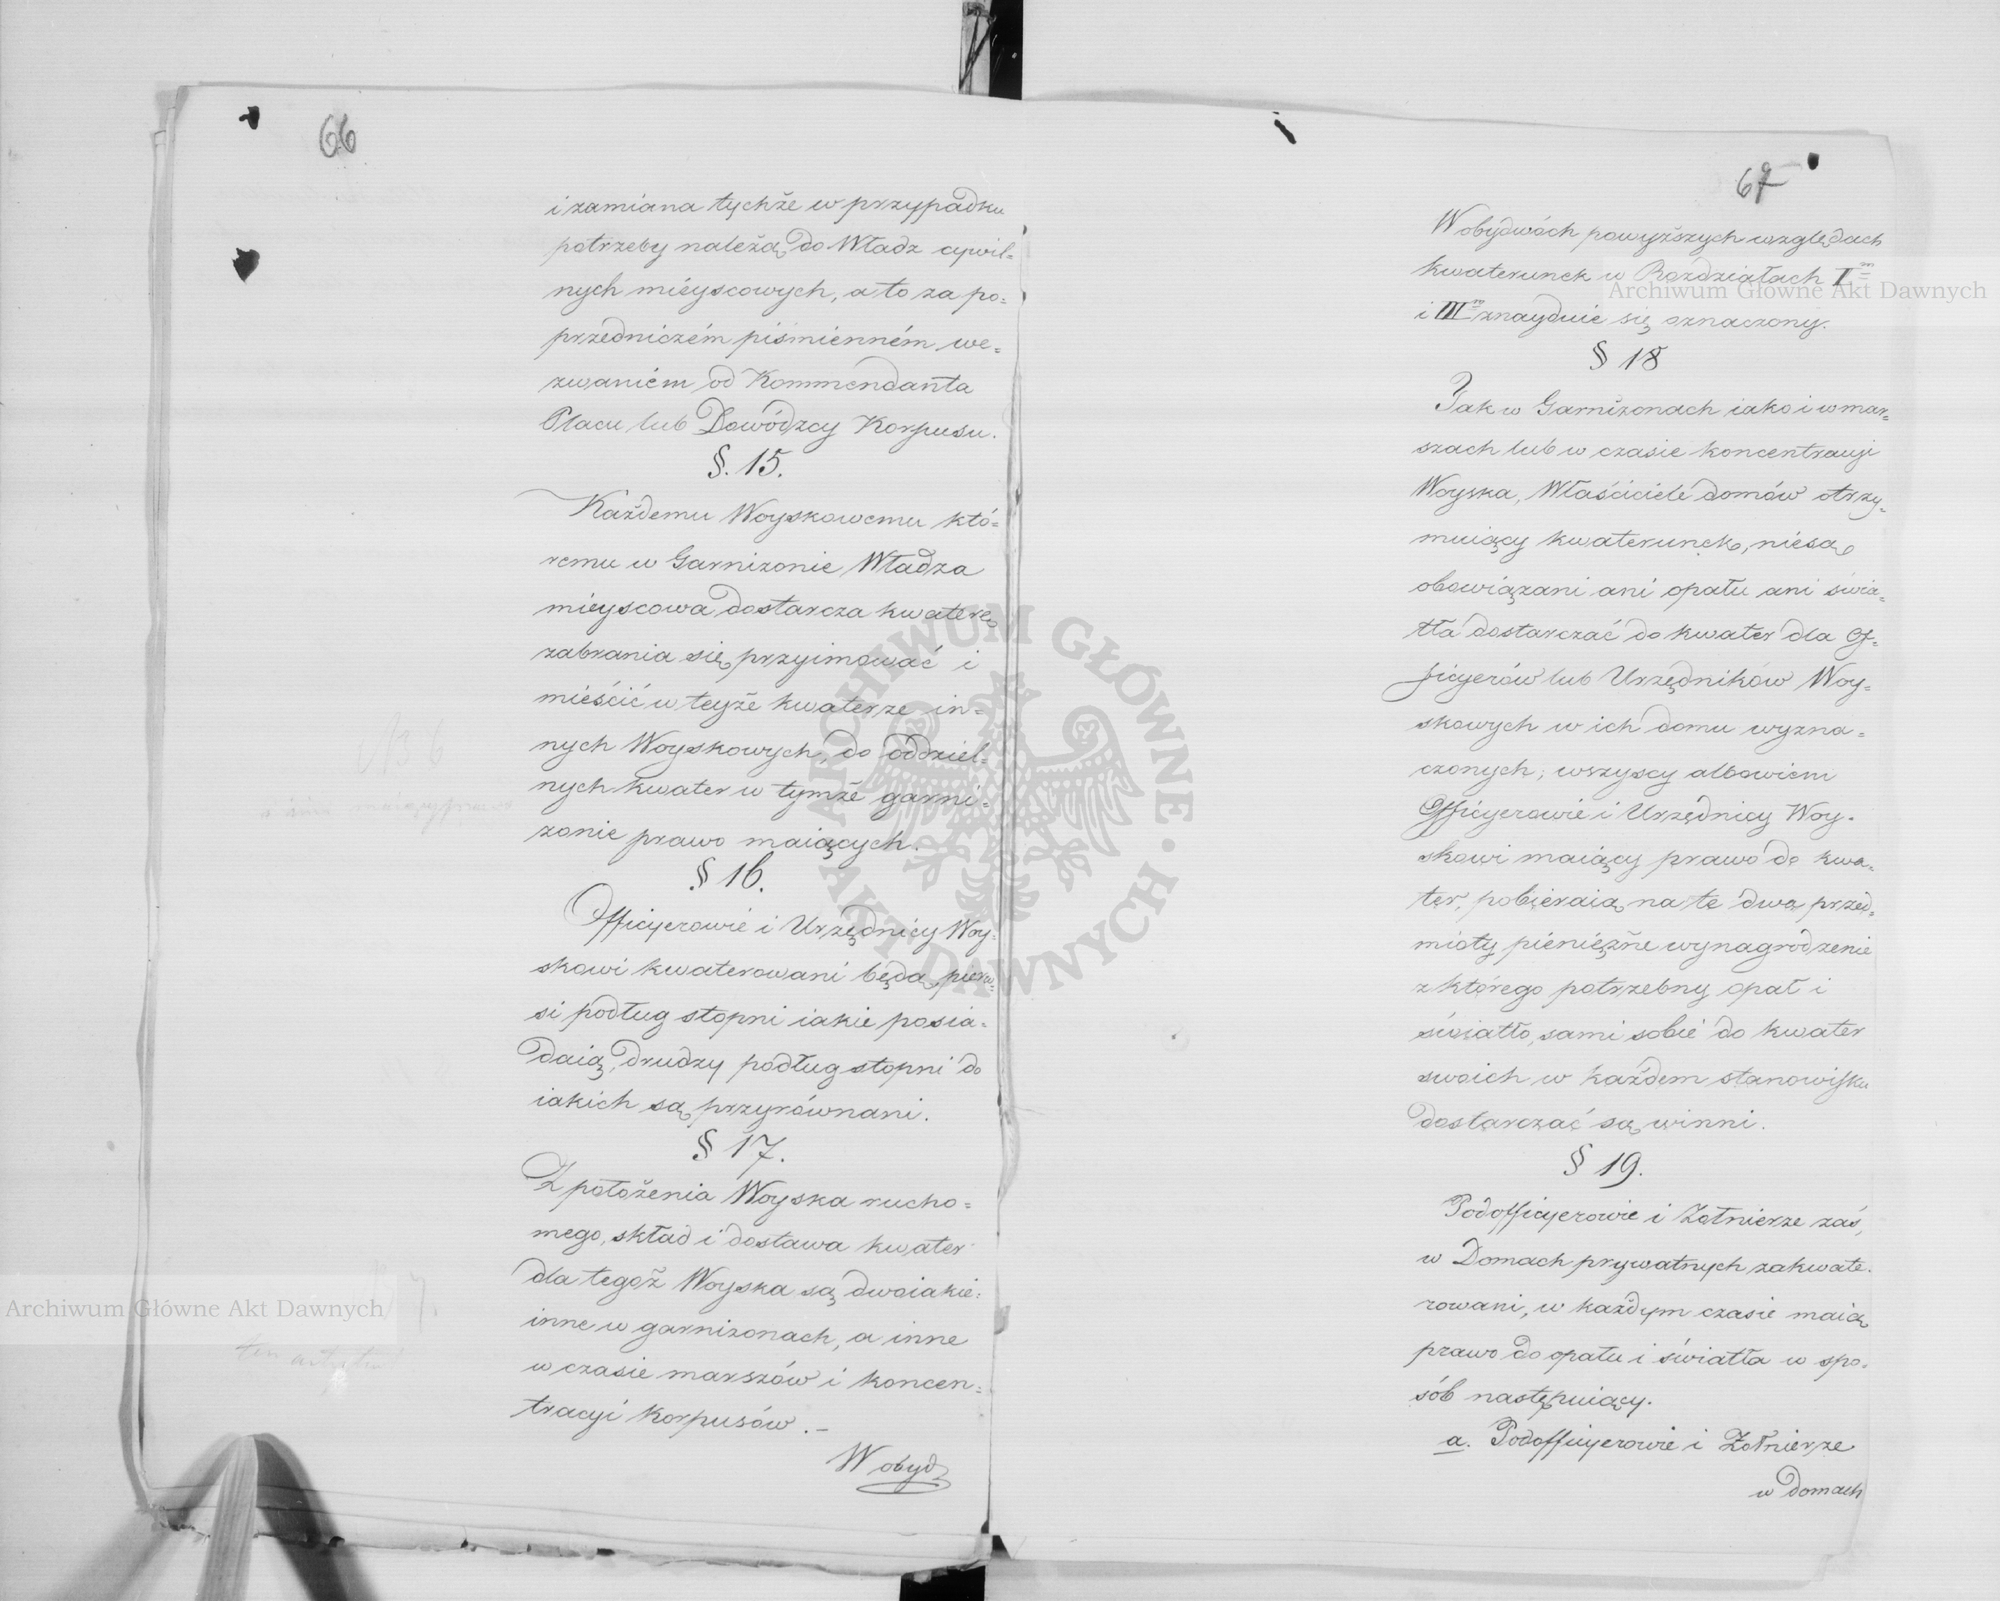 66
i zamiana tychże w przypadku
potrzeby należą do Władz cywil=
nych mieyscowych, a to za po=
przedniczém piśmienném we=
zwaniém od Kommendanta
Placu lub Dowódzcy Korpusu.
§. 15.
Każdemu Woyskowemu któ=
remu w Garnizonie Władza
mieyscowa dostarcza kwaterę
zabrania się przyimować i
mieścić w teyże kwaterze in=
nych Woyskowych, do oddziel=
nych kwater w tymże garni=
zonie prawo maiących.
§ 16.
Officyerowie i Urzędnicy Woy=
skowi kwaterowani będą, pierw=
si podług stopni iakie posia=
daią, drudzy podług stopni do
iakich są przyrównani.
§ 17.
Z położenia Woyska rucho=
mego, skład i dostawa kwater
dla tegoż Woyska są dwoiakie:
inne w garnizonach, a inne
w czasie marszów i koncen=
tracyi Korpusów. –
W obyd
67
W obydwóch powyższych względach
kwaterunek w Rozdziałach II
i III znayduie się oznaczony.
§ 18
Jak w Garnizonach iako i w mar=
szach lub w czasie koncentracyi
Woyska, Właściciele domów otrzy=
muiący kwaterunek, niesą
obowiązani ani opału ani świa=
tła dostarczać do kwater dla Of=
ficyerów lub Urzędników Woy=
skowych w ich domu wyzna=
czonych; wszyscy albowiem
Officyerowie i Urzędnicy Woy=
skowi maiący prawo do kwa=
ter, pobieraią na te dwa przed=
mioty pieniężne wynagrodzenie
z którego potrzebny opał i
światło, sami sobie do kwater
swoich w każdem stanowisku
dostarczać są winni.
§ 19.
Podofficyerowie i Żołnierze zaś,
w Domach prywatnych zakwate=
rowani, w każdym czasie maią
prawo do opału i światła w spo=
sób następuiący.
a. Podofficyerowie i Żołnierze
w domach
Archiwum Główne Akt Dawnych
Archiwum Główne Akt Dawnych
ARCHIWUM GŁÓWNE · AKT DAWNYCH ·